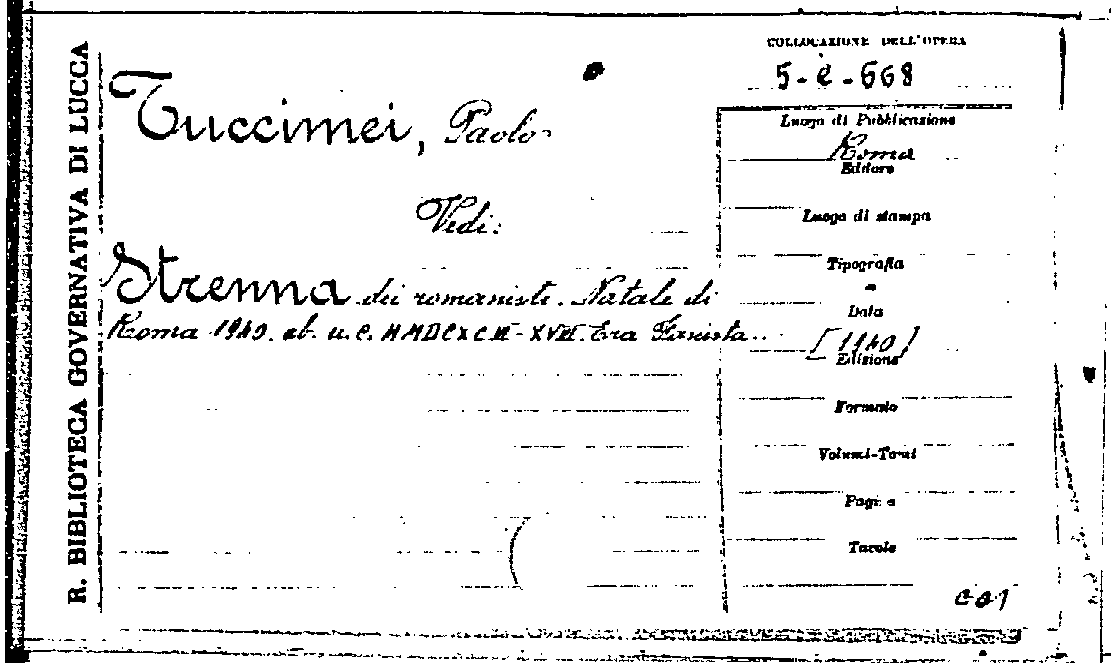 R. BIBLIOTECA GOVERNATIVA DI LUCCA
COLLOCAZIONE DELL'OPERA
5-e-668
Tuccimei, Paolo
Vedi:
Strenna dei romanisti. Natale di
Roma 1940. ab. u. c. MMDCXCIII-XVIII Era Fascista..
Luogo di Pubblicazione
Roma
Editore
Luogo di stampa
Tipografia
Data
[1940]
Edizione
Formato
Volumi-Tomi
Pagine
Tavole